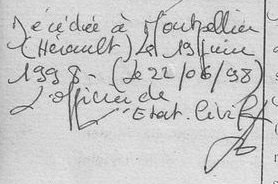 Décédée à Montpellier
(Hérault) Le 19 juin
1998 - (Le 22/06/98)
L'officier de
Etat. Civil